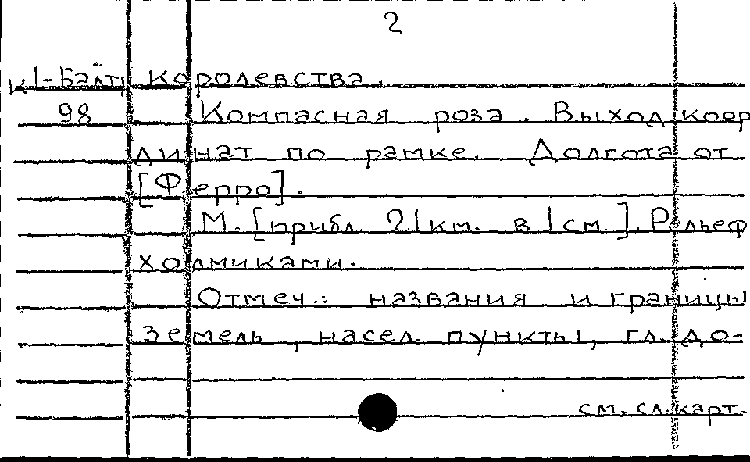 2
К1-Балт Королевства.
98 Компасная роза. Выход коор
динат по рамке. Долгота от
[Ферро].
М. [прибл 21км. в 1см]. Рельеф
холмиками.
Отмеч.: названия и границы
земель, насел. пункты, гл. до-
см. сл. карт.